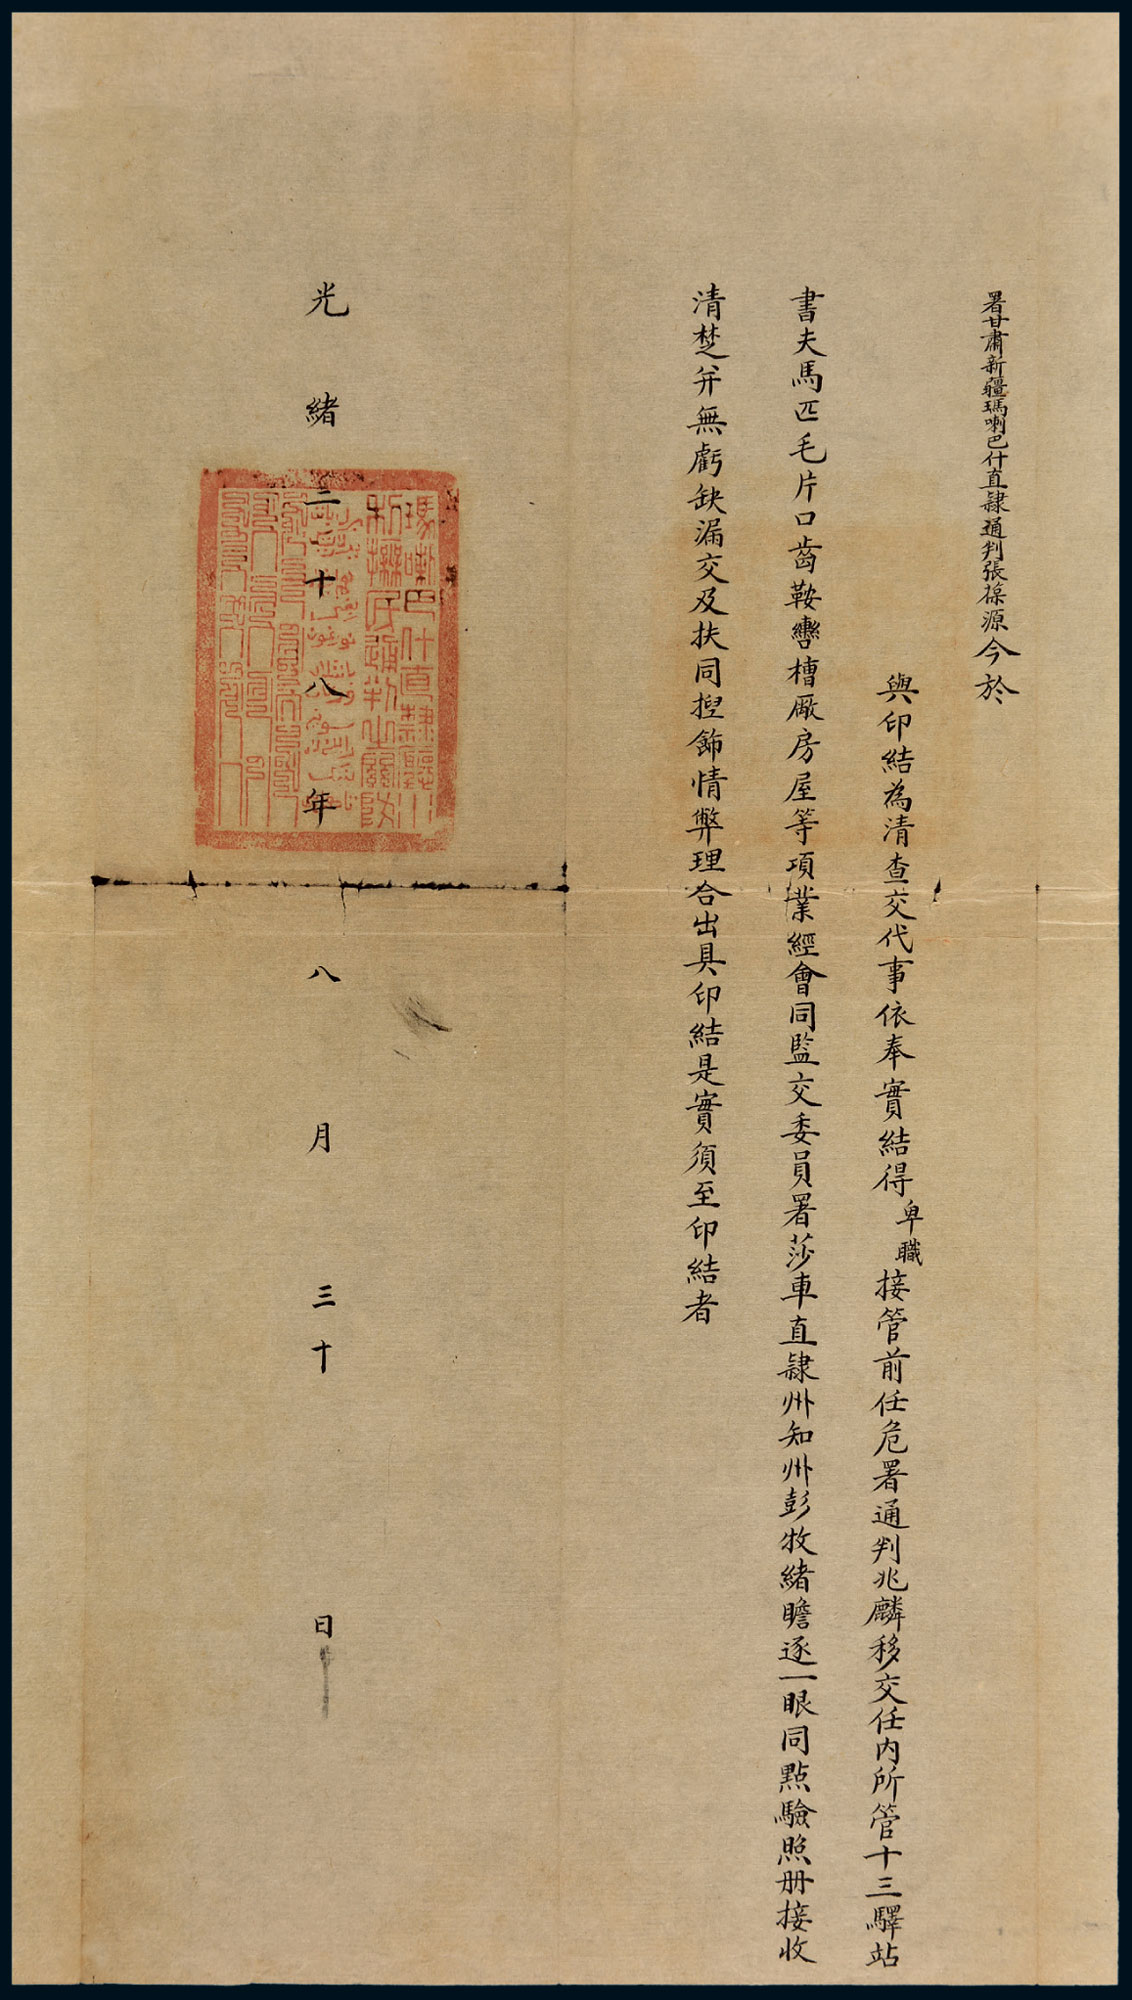 署甘肅新疆瑪喇巴什直隸通判張葆源今於
與印結為清查交代事依奉實結得卑職接管前任危署通判兆麟移交任內所管十三驛站
書夫馬匹毛片口齒鞍轡槽厰房屋等項業經會同監交委員署莎車直隸州知州彭牧緒瞻逐一眼同點驗照册接收
清楚并無虧缺漏交及扶同揑飾情弊理合出具印結是實須至印結者
瑪喇巴什直隸廳
撫民通判之關防
光緒二十八年八月三十日